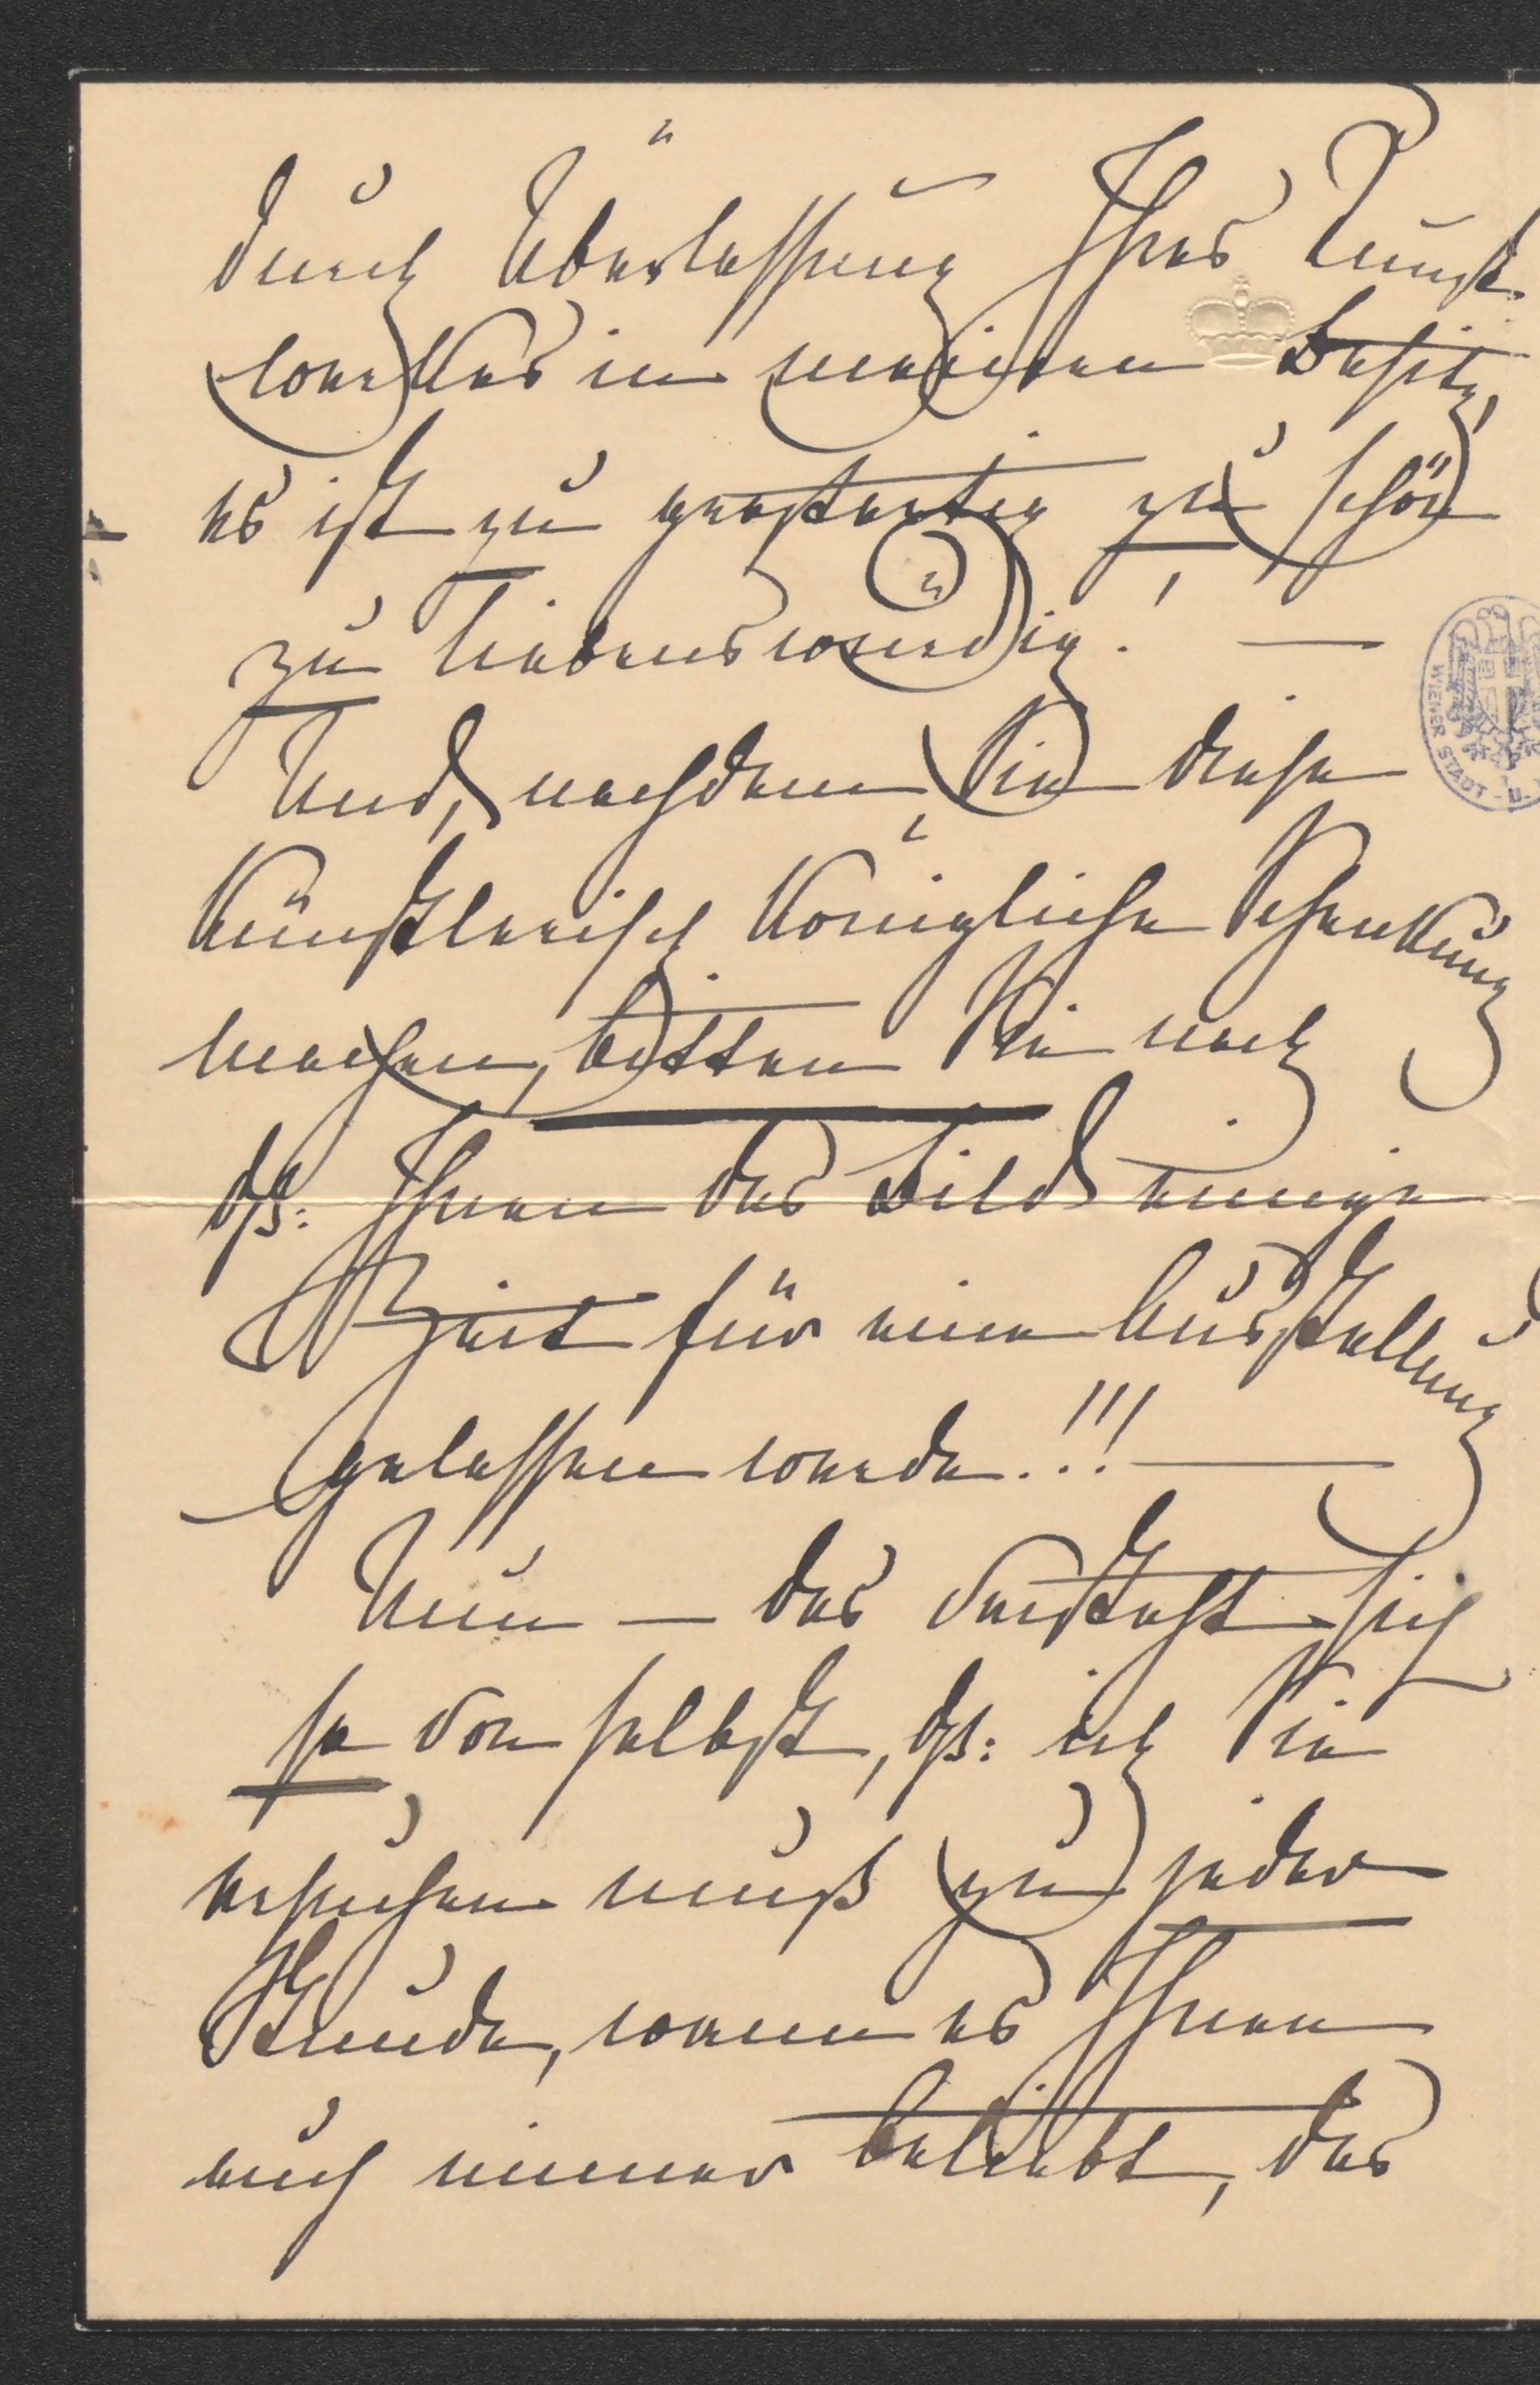 durch Überlassung Ihres Kunst-
werkes in meinen Besitz,
es ist zu großartig zu schön
zu liebenswürdig! —
Und, nachdem Sie diese
künstlerisch königliche Schenkung
machen, bitten Sie noch
dß: Ihnen das Bild einige
Zeit für eine Ausstellung
gelassen werde!!! —
Nun — das versteht sich
so von selbst, dß: ich Sie
ersuchen muß zu jeder
Stunde, wenn es Ihnen
auch immer beliebt, das
WIENER STADT - U.